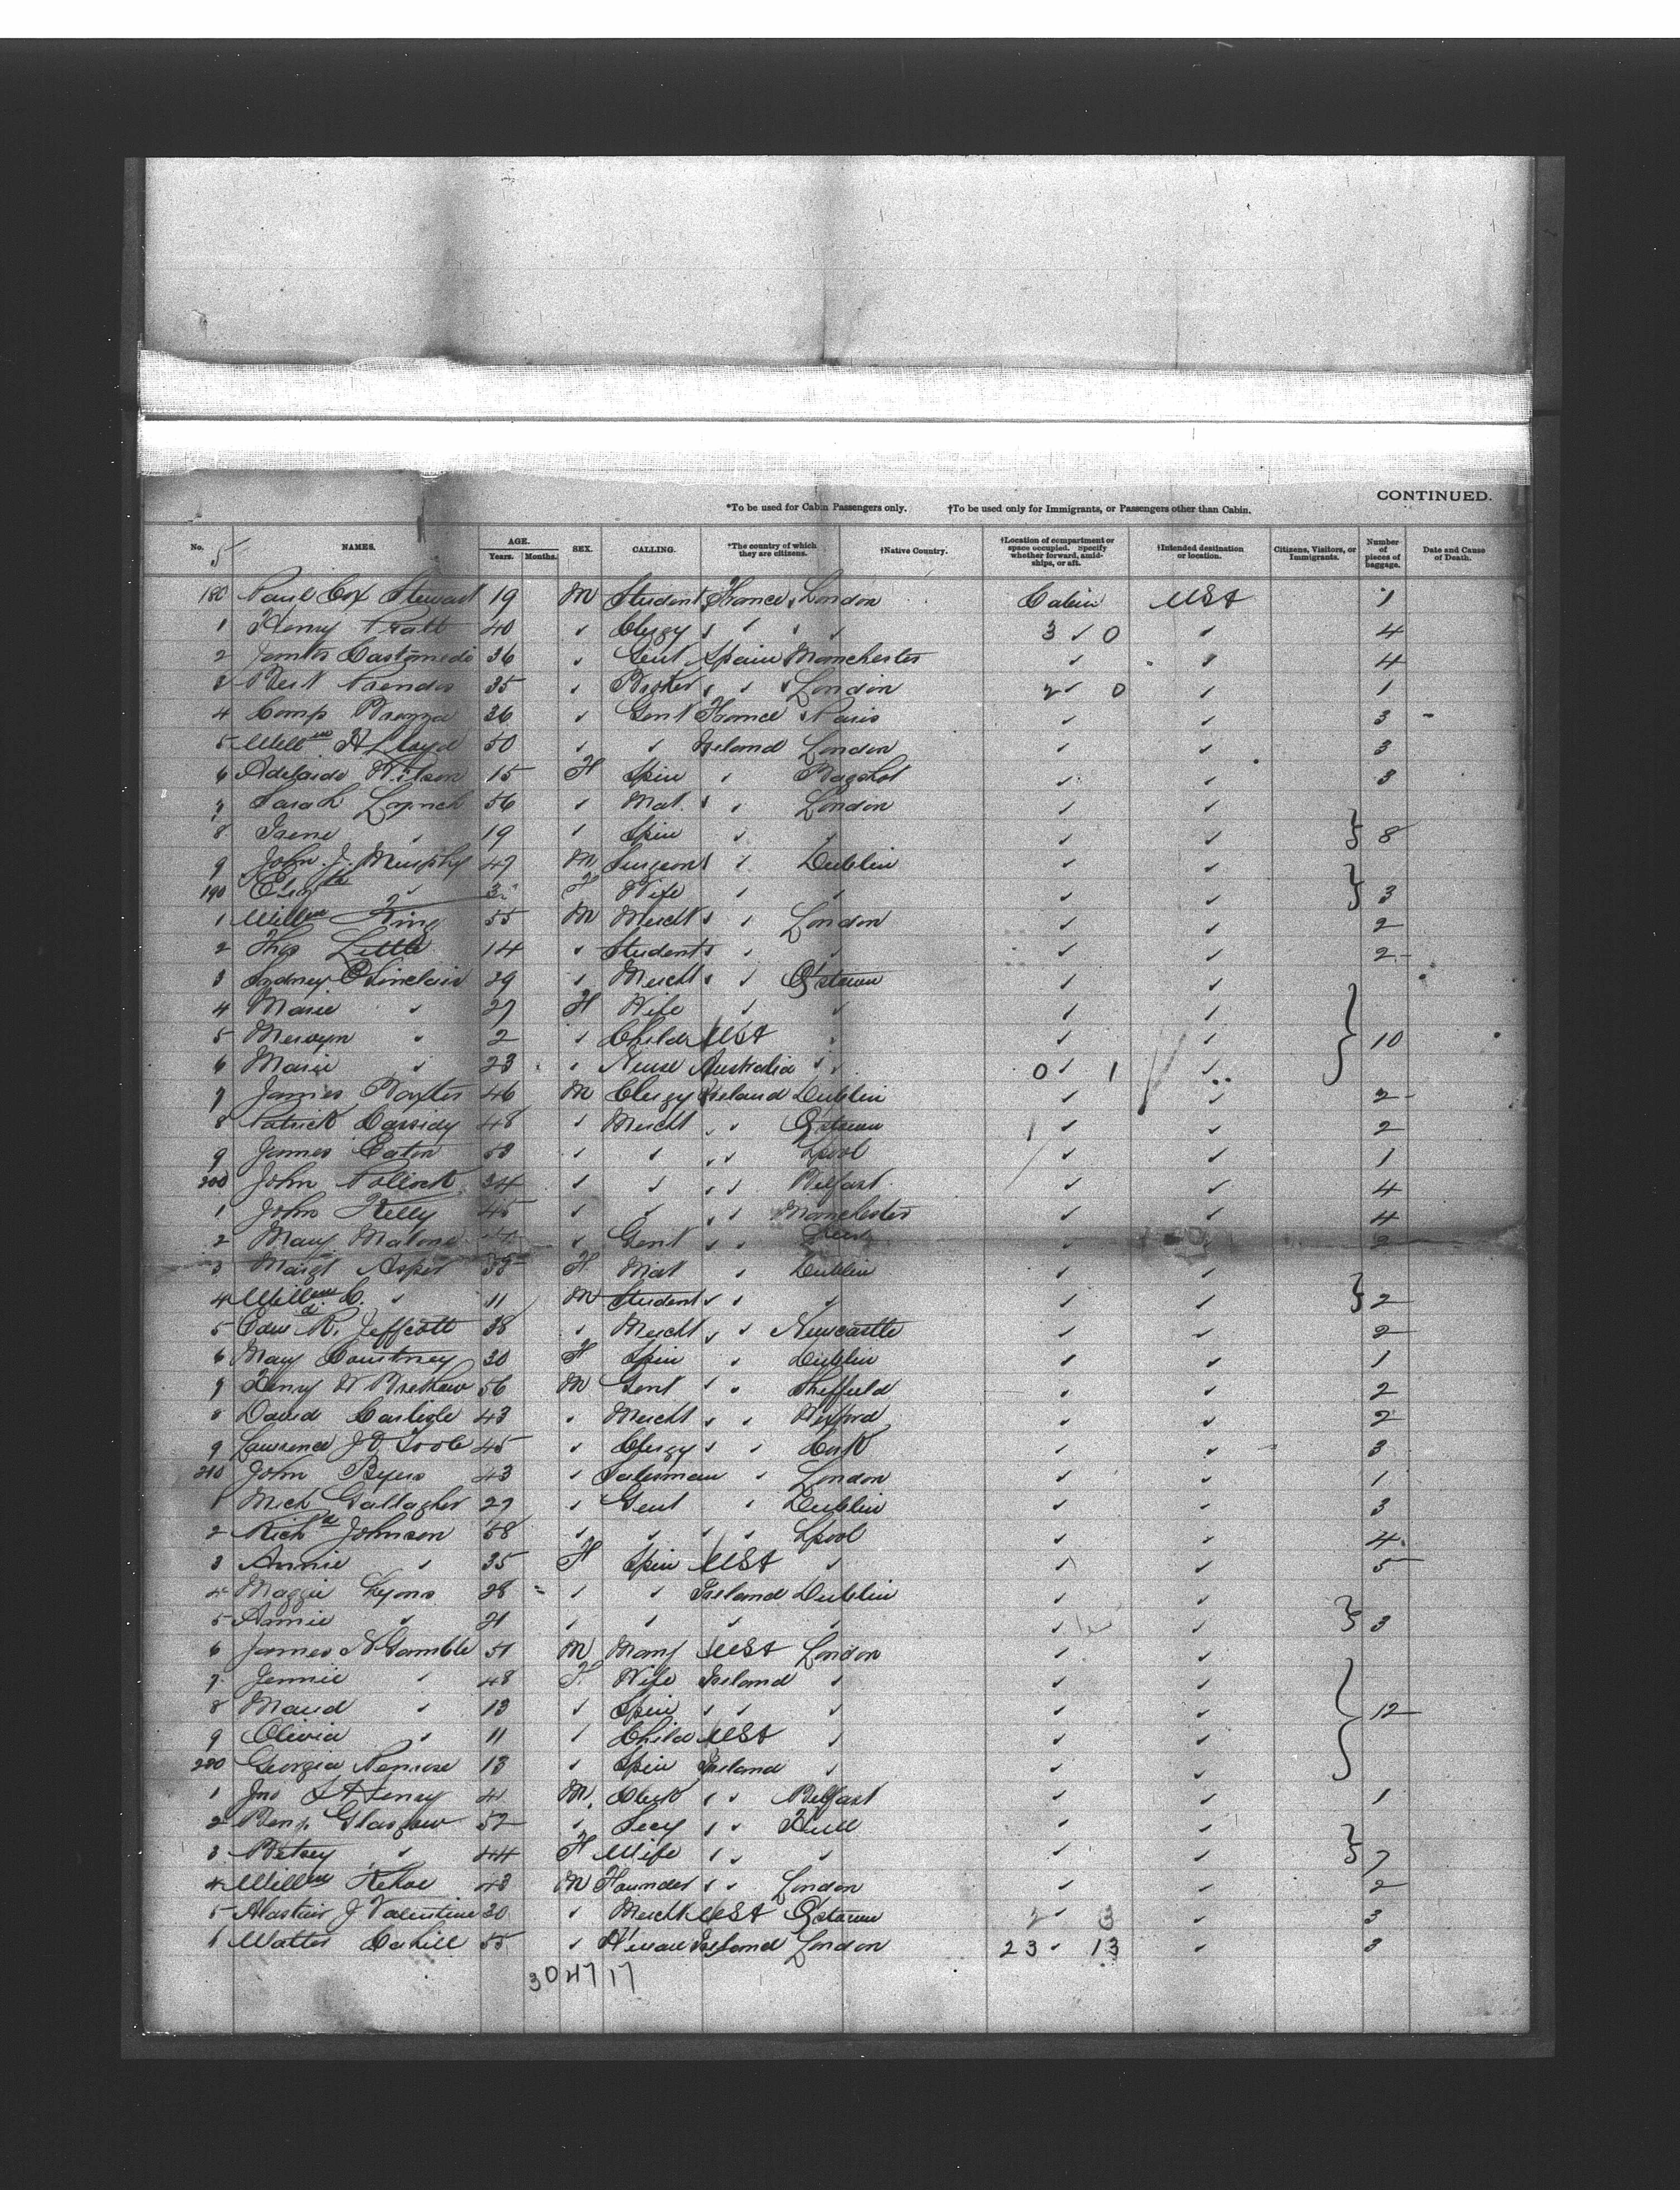 CONTINUED.
*To be used for Cabin Passengers only. †To be used only for Immigrants, or Passengers other than Cabin.
No. 5 NAMES. AGE. Years. Months. SEX. CALLING. *The country of which they are citizens. †Native Country. †Location of compartment or space occupied. Specify whether forward, amidships, or aft. †Intended destination or location. Citizens, Visitors, or Immigrants. Number of pieces of baggage. Date and Cause of Death.
180 Paul Cox Stewart 19 M Student France London Cabin USA 1
1 Henry Pratt 40 ✓ Clergy ✓ ✓ ✓ ✓ 3 ✓ 0 ✓ 4
2 36 ✓ Gent Spain Manchester ✓ ✓ 4
3 35 ✓ Broker ✓ ✓ London 2 ✓ 0 ✓ 1
4 36 ✓ Gent France Paris ✓ ✓ 3
5 Willm H Lloyd 50 ✓ ✓ Ireland London ✓ ✓ 3
6 Adelaide Wilson 15 F Spin ✓ Bagshot ✓ ✓ 3
7 Sarah Lynch 56 ✓ Mat. ✓ ✓ London ✓ ✓
8 Irene ✓ 19 ✓ Spin ✓ ✓ ✓ ✓ } 8
9 John J. Murphy 47 M Surgeon ✓ Dublin ✓ ✓
190 Elizth ✓ F Wife ✓ ✓ ✓ ✓ } 3
1 Willm King 55 M Mercht ✓ ✓ London ✓ ✓ 2
2 Thos Little 14 ✓ Student ✓ ✓ ✓ ✓ ✓ 2
3 Sydney Sinclair 29 ✓ Mercht ✓ ✓ Qstown ✓ ✓
4 Marie ✓ 27 F Wife ✓ ✓ ✓ ✓
5 Mervyn ✓ 2 ✓ Child USA ✓ ✓ ✓ } 10
6 Marie ✓ 23 ✓ Nurse Australia ✓ ✓ 0 ✓ 1 ✓
7 James Baxter 46 M Clergy Ireland Dublin ✓ ✓ 2
8 Patrick Cassidy 48 ✓ Mercht ✓ ✓ Qstown ✓ ✓ 2
9 James Eaton 53 ✓ ✓ ✓ ✓ Lpool ✓ ✓ 1
200 John Pollock 34 ✓ ✓ ✓ ✓ Belfast ✓ ✓ 4
1 John Kelly 45 ✓ ✓ ✓ ✓ Manchester ✓ ✓ 4
2 Mary Malone ✓ Gent ✓ ✓ ✓ ✓ 2
3 Margt 35 F Mat ✓ Dublin ✓ ✓
4 Willm C. ✓ 11 M Student ✓ ✓ ✓ ✓ ✓ } 2
5 Edwd R. Jeffcott 38 ✓ Mercht ✓ ✓ Newcastle ✓ ✓ 2
6 May Courtney 30 F Spin ✓ Dublin ✓ ✓ 1
7 Henry W 56 M Gent ✓ ✓ Sheffield ✓ ✓ 2
8 David Carlisle 43 ✓ Mercht ✓ ✓ Wexford ✓ ✓ 2
9 Lawrence J O Toole 45 ✓ Clergy ✓ ✓ Cork ✓ ✓ 3
210 John Byers 43 ✓ Salesman ✓ London ✓ ✓ 1
1 Mich Gallagher 27 ✓ Gent ✓ Dublin ✓ ✓ 3
2 Richd Johnson 58 ✓ ✓ ✓ ✓ Lpool ✓ ✓ 4
3 Annie ✓ 35 F Spin USA ✓ ✓ ✓ 5
4 Maggie Lyons 28 ✓ ✓ Ireland Dublin ✓ ✓
5 Annie ✓ 21 ✓ ✓ ✓ ✓ ✓ ✓ } 3
6 James N Gamble 51 M Manf USA London ✓ ✓
7 Jennie ✓ 48 F Wife Ireland ✓ ✓ ✓
8 Maud ✓ 13 ✓ Spin ✓ ✓ ✓ ✓ ✓ } 12
9 Olivia ✓ 11 ✓ Child USA ✓ ✓ ✓
220 Georgia Penrose 13 ✓ Spin Ireland ✓ ✓ ✓
1 Jno Henry 41 M. Clerk ✓ ✓ Belfast ✓ ✓ 1
2 Benj. Glasgow 52 ✓ Secy ✓ ✓ Hull ✓ ✓
3 Betsey ✓ 44 F Wife ✓ ✓ ✓ ✓ ✓ } 7
4 Willm Kehoe 43 M Founder ✓ ✓ London ✓ ✓ 2
5 Alastair J Valentine 30 ✓ Mercht USA Qstown 2 ✓ 3 ✓ 3
6 Walter Cahill 55 ✓ Ireland London 23 ✓ 13 ✓ 3
30 47 17